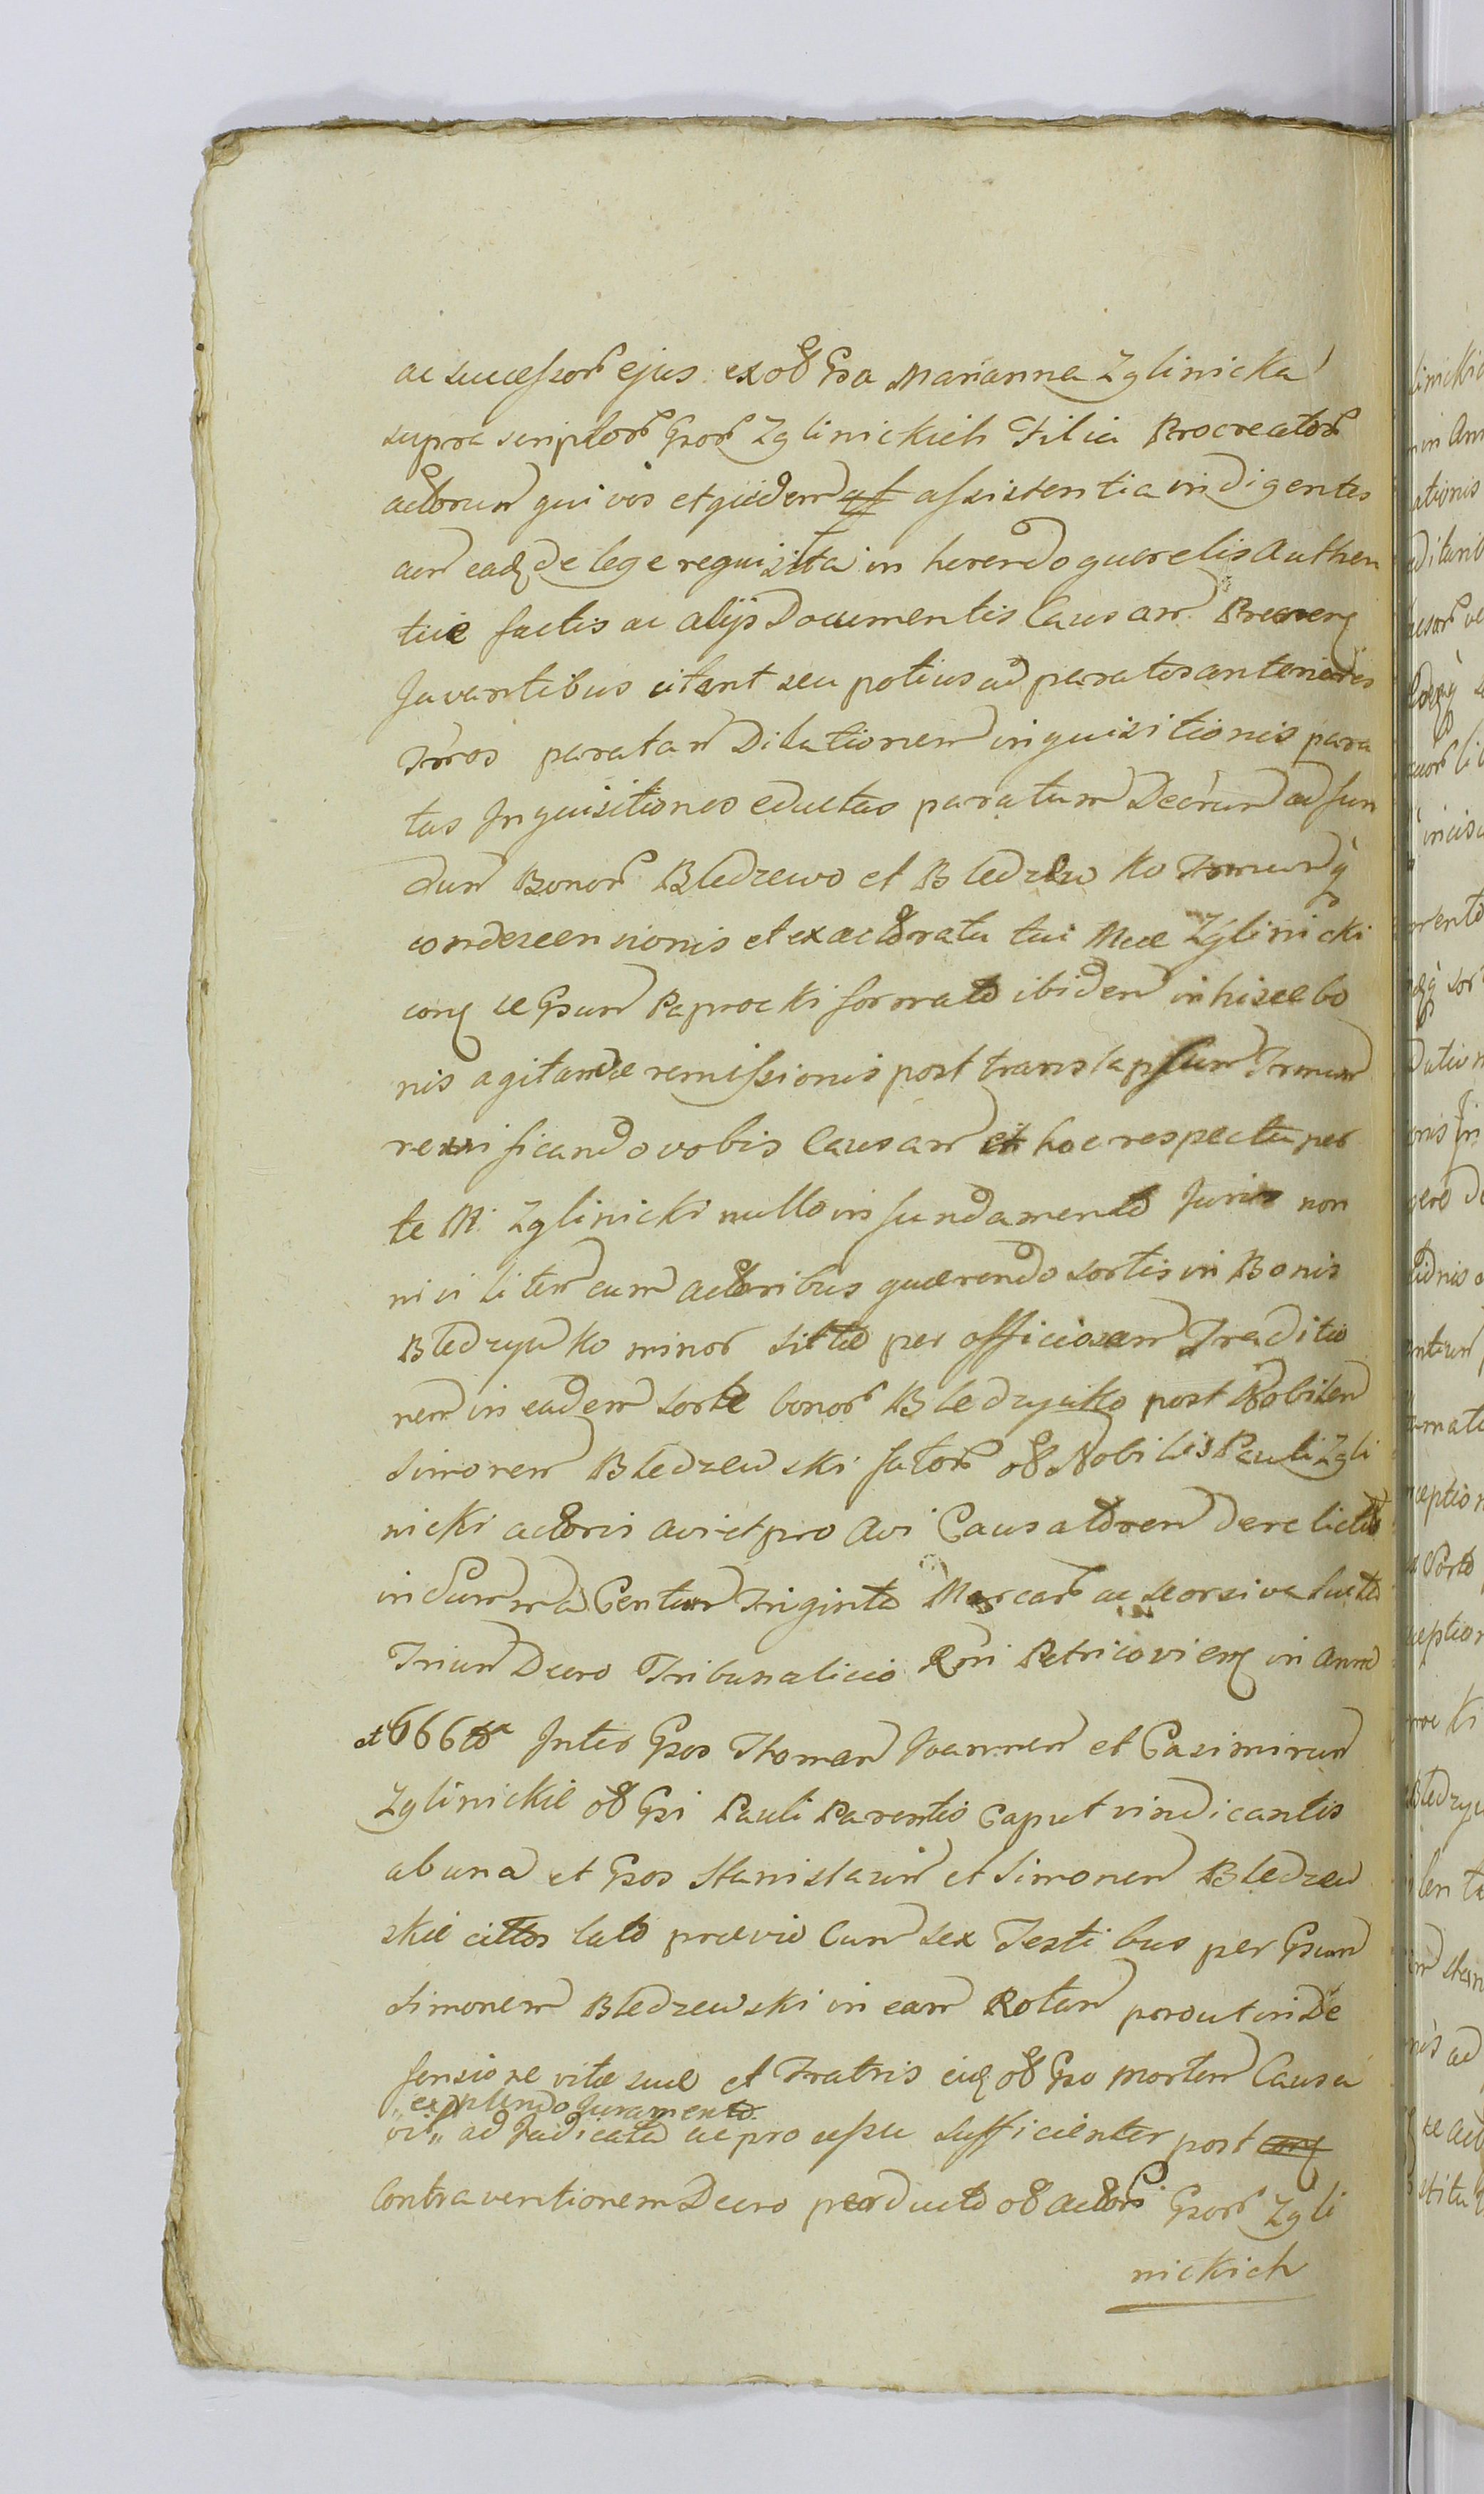 ac successor ejus ex ol Gsa Marianna Zglinicka
supra scriptor Gsor Zglinickich Filia Procreator
actorum qui vos et quidem assistentia indigentes
cum eadq de lege requisita in herendo querelis Authen
tice factis ac alijs Documentis Causam Presenq
Juvantibus citant seu potius ad paratos anteriores
Tmos paratam Dilationem inquisitionis para
tas Inquisitiones eductas paratum Decrum ad fun
dum Bonor Bledzewo et Bledzewko Tmumq
condescensionis et ex actoratu tui Mce Zglinicki
conq te Gsum Paprocki formato ibidem in hisce bo
nis agitandae remissionis post translapsum Tmum
reassificando vobis Causam et hoc respectu per
te M. Zglinicki nullo in fundamento Juris non
nisi litem cum actoribus quaerendo sortis in Bonis
Bledzywko minor sittae per officiosam Traditio
nem in eadem sorte bonor Bledzywko post Nobilem
Simonem Bledzewski fator ol Nobilis Pauli Zgli
nicki actoris avi et pro avi Causatorem derelictis
in Summa Centum Triginta Marcar ac seorsiva luito
Trium Decro Tribunalicio Rni Petricovienq in Anno
1666to Inter Gsos Thomam Joannem et Casimirum
Zglinickie ol Gsi Pauli Parentis Caput vindicantis
ab una et Gsos Stanislaum et Simonem Bledzew
skie cittos lato praevio Cum sex Testibus per Gsum
Simonem Bledzewski in eam Rotam prout in De
fensione vitae suae et Fratris eiq ol Gso mortem Causa
"explendo Juramento
vit" adjudicata ac processu sufficienter post conq
Contraventionem Decro perducto ol actor Gsor Zgli
nickich